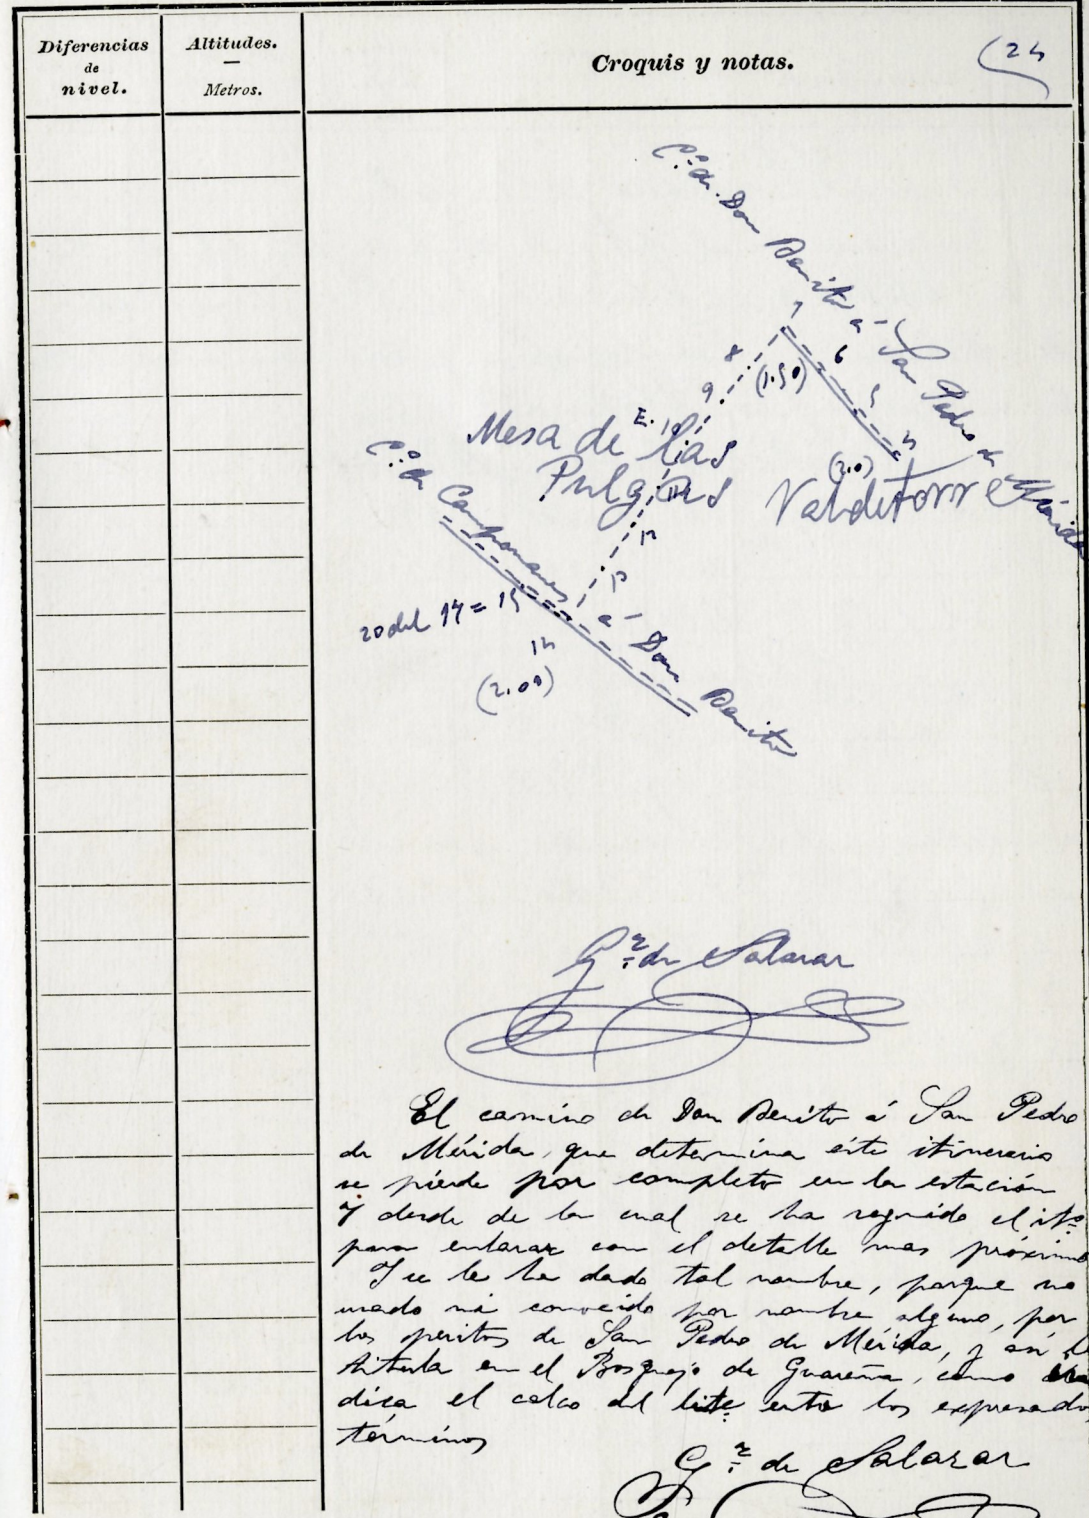 Diferencias
de
nivel.
Altitudes.
Metros.
Croquis y notas.
(24
C.º de Don Benito á San Pedro de Mérida
7
8
6
(1.50)
9
5
E. 10
4
Mesa de las
Pulgas
11
(2.0)
Valdetorre
C.º de Campomanes á Don Benito
12
13
20 del 14 = 15
14
(2.00)
G.z de Salazar
El camino de Don Benito á San Pedro
de Mérida, que determina éste itinerario
se pierde por completo en la estación
7 desde de la cual se ha seguido el it.º
para enlazar con el detalle mas próximo
Y se le ha dado tal nombre, porque no
usado ni conocido por nombre alguno, por
los peritos de San Pedro de Mérida, y así se
titula en el Bosquejo de Guareña, como
dica el calco del lite. entre los expresados
términos
G.z de Salazar